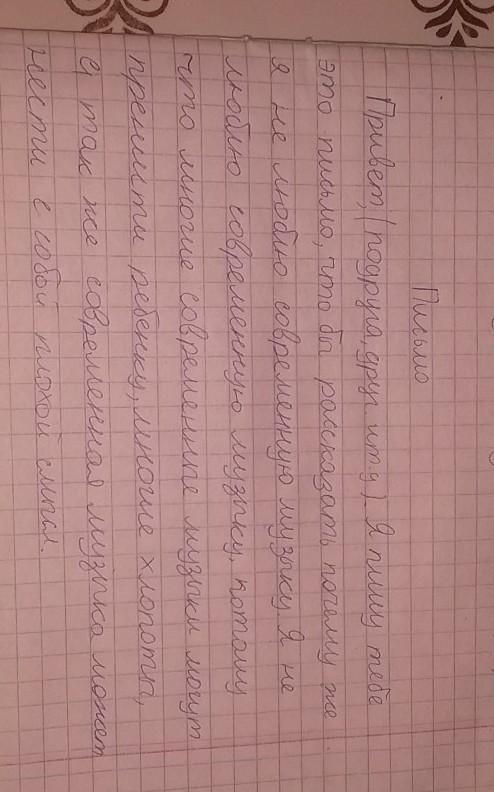 Письмо
Привет, (подруга, друг и т.д). Я пишу тебе
это письмо, что бы рассказать почему же
я не люблю современную музыку. Я не
люблю современную музыку, потому
что многие современные музыки могут
пренисти ребенку, многие хлопоты,
а так же современная музыка может
нести с собой плохой смысл.